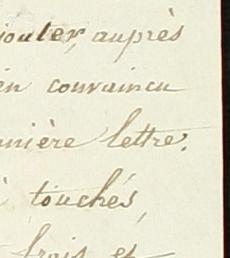 jouter, auprès
en convaincu
nière lettre.
touchés,
frais et